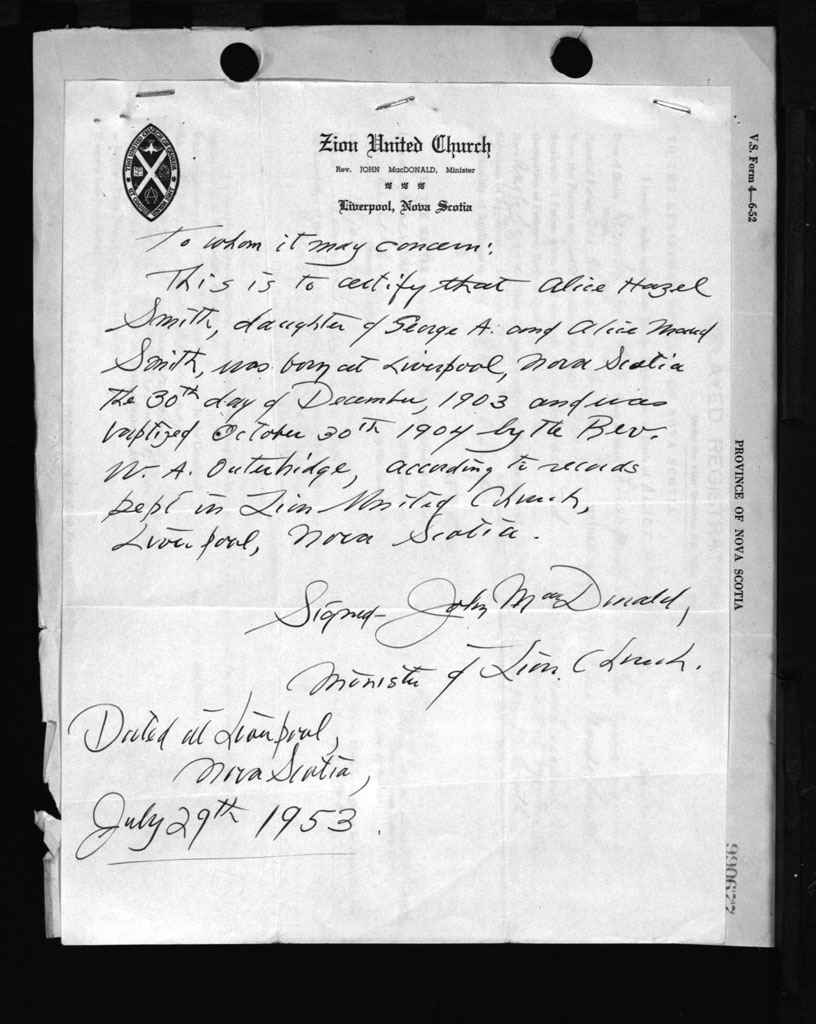 Zion United Church
Rev. JOHN MacDONALD, Minister
Liverpool, Nova Scotia
To whom it may concern:
This is to certify that Alice Hazel
Smith, daughter of George A. and Alice Maud
Smith, was born at Liverpool, Nova Scotia
the 30th day of December, 1903 and was
baptized October 30th 1904 by the Rev.
W. A. Outerbridge, according to records
kept in Zion United Church,
Liverpool, Nova Scotia.
Signed John MacDonald,
Minister of Zion Church.
Dated at Liverpool,
Nova Scotia,
July 29th 1953.
V.S. Form 4—6-52
PROVINCE OF NOVA SCOTIA